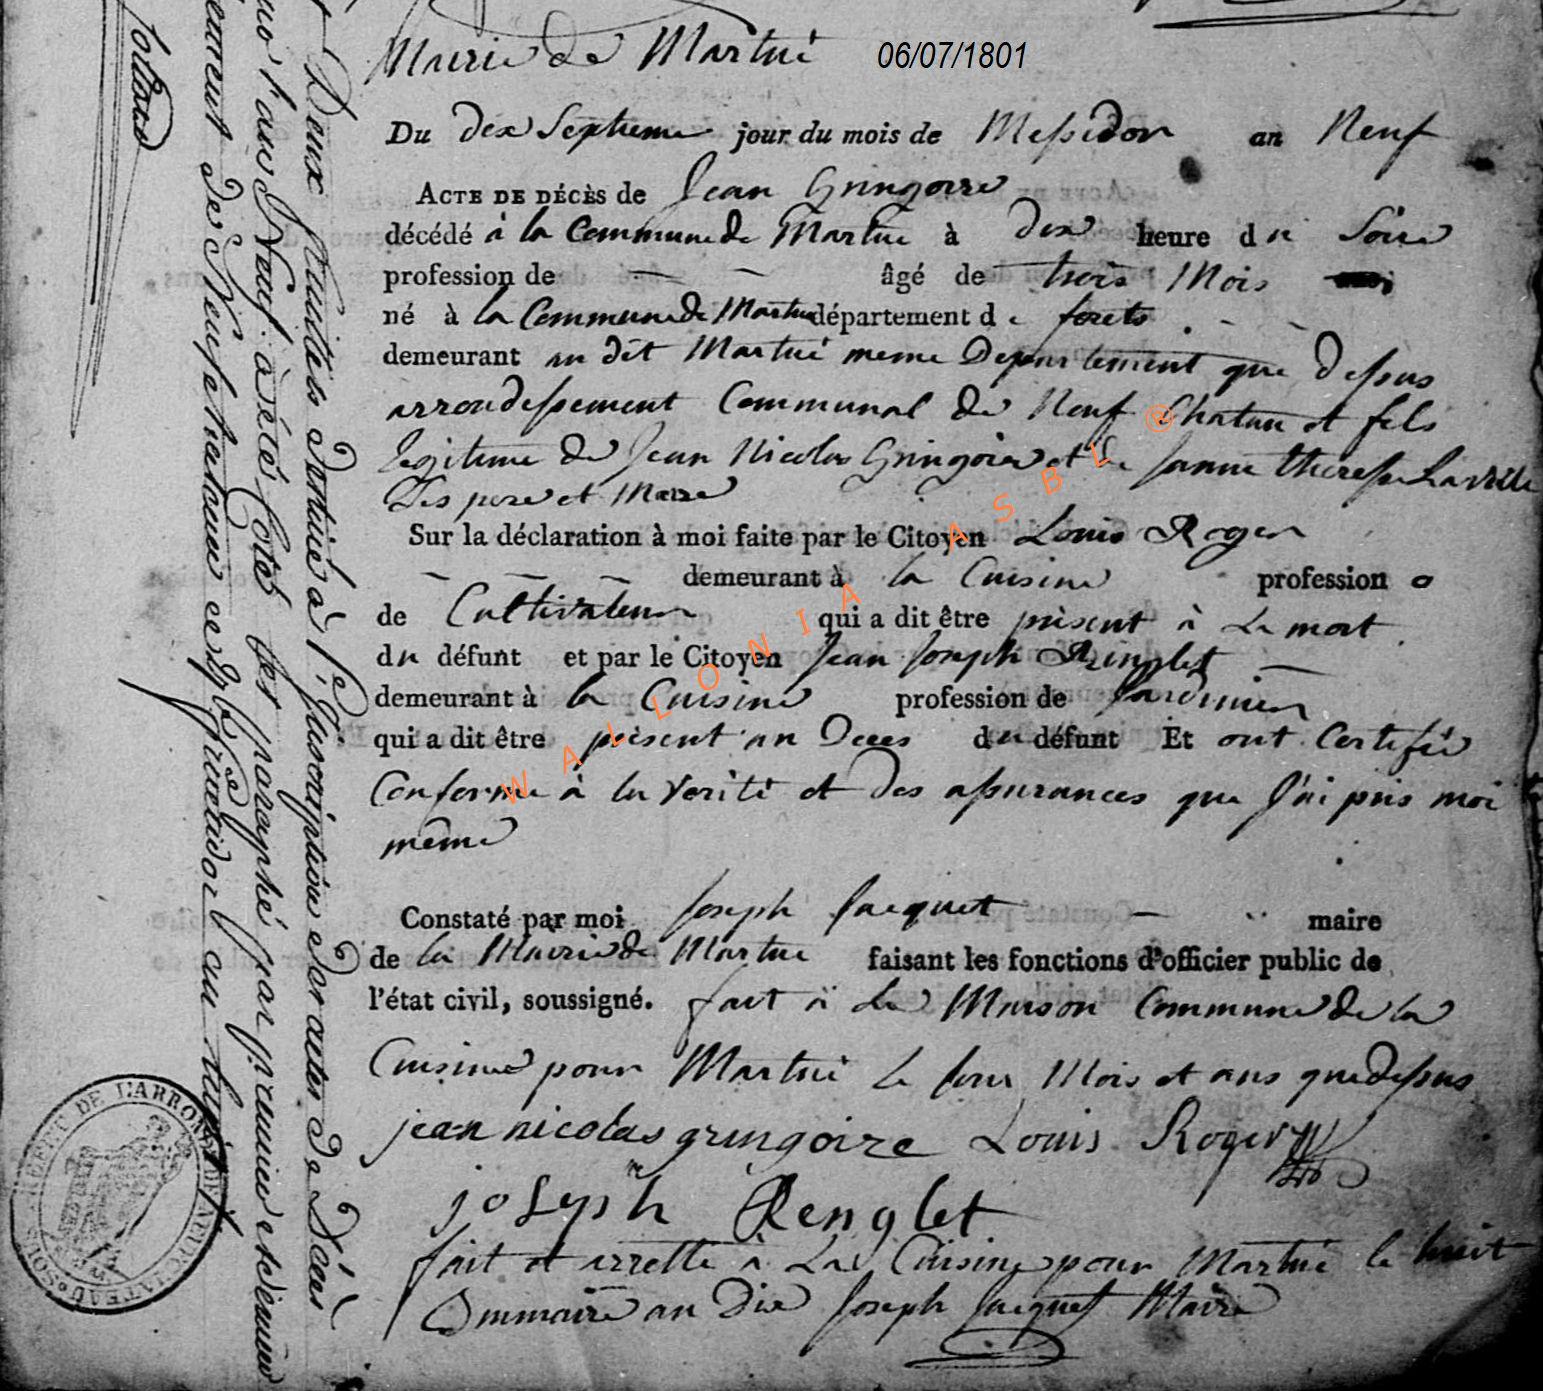 Mairie de Martué 06/07/1801
Du dix Septieme jour du mois de Messidor an Neuf
ACTE DE DÉCÈS de Jean Gringoire
décédé à la Commune de Martue à dix heure du Soire
profession de — — âgé de trois Mois
né à la Commune de Martue département de forets
demeurant au dit Martué meme Departement que dessus
arrondessement Communal de Neuf Chatau et fils
legitime de Jean Nicolas Gringoire et de Janne therese Laville
Ses pere et Mere
Sur la déclaration à moi faite par le Citoyen Louis Roger
— — — demeurant à la Cuisine profession
de Cultivateur qui a dit être présent à La mort
du défunt et par le Citoyen Jean Joseph Renglet —
demeurant à la Cuisine profession de Jardinier
qui a dit être present au Deces du défunt Et ont Certifié
Conforme à la Verité et des assurances que J'ai pris moi
même
Constaté par moi Joseph Jacquet — maire
de la Mairie de Martue faisant les fonctions d'officier public de
l'état civil, soussigné. fait à La Maison Commune de la
Cuisine pour Martué le Jour Mois et ans que dessus
jean nicolas gringoire Louis Roger
joseph Renglet
fait et arretté à La Cuisine pour Martué le huit
Brumaire an Dix Joseph Jacquet Maire
WALLONIA ASBL ®
Deux feuilles destinée à l'Inscription des actes de Décés
l'an Neuf à été Cotés et paraphé par premier et dernier